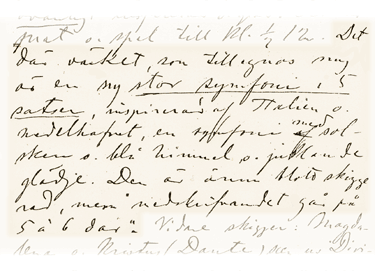 mat o. spel till kl. ½ 12. Det
där värket, som tillegnas mig
är en ny stor symfoni i 5
satser, inspirerad af Italien o.
medelhafvet, en symfoni med sol-
sken o. blå himmel o. jublande
glädje. Den är ännu blott skizze-
rad, men nedskrifvandet går på
5 à 6 dar".  Vidare skizzer: Magda-
lena o. Kristus, Dante, ur Divi-